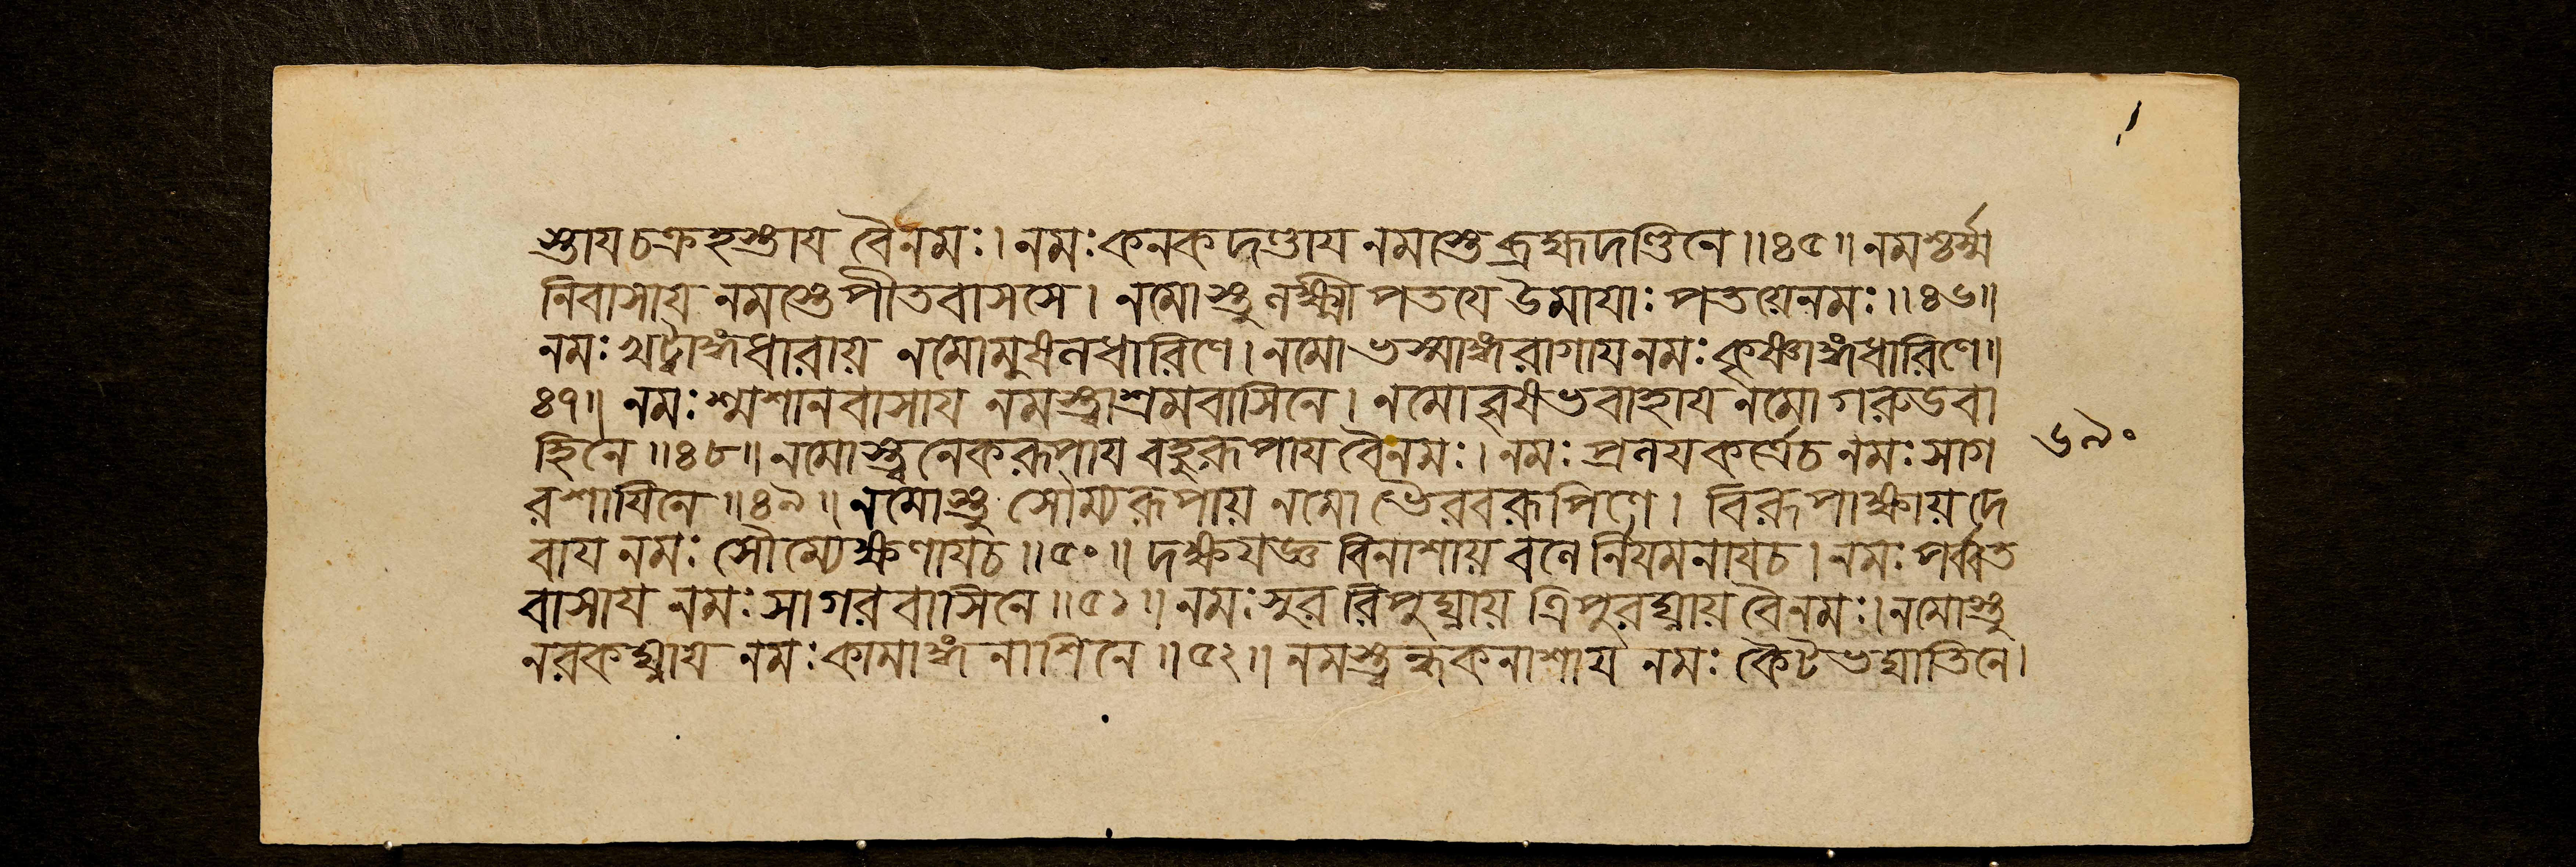 স্তায চক্রহস্তায বৈনমঃ। নমঃ কনকদণ্ডায নমস্তে ব্রহ্মদণ্ডিনে॥৪৫॥ নমশ্চর্ম্ম
নিবাসায় নমস্তে পীতবাসসে। নমোস্তু লক্ষ্মীপতযে উমাযাঃ পতয়ে নমঃ॥৪৬॥
নমঃ খট্বাঙ্গধারায় নমো মুষলধারিণে। নমো ভস্মাঙ্গরাগায নমঃ কৃষ্ণাঙ্গধারিণে॥
৪৭॥ নমঃ শ্মশানবাসায নমস্ত্বাশ্রমবাসিনে। নমো বৃষভবাহায নমো গরুডবা
হিনে॥৪৮॥ নমোস্ত্বনেকরূপায বহুরূপায বৈনমঃ। নমঃ প্রলয়কর্ত্রেচ নমঃ সাগ
রশাযিনে॥৪৯॥ নমোস্তু সৌম্যরূপায় নমো ভৈরবরূপিণে। বিরূপাক্ষায় দে
বায নমঃ সৌম্যেক্ষণাযচ॥৫০॥ দক্ষযজ্ঞ বিনাশায় বলে র্নিযমনাযচ। নমঃ পর্ব্বত
বাসায নমঃ সাগরবাসিনে॥৫১॥ নমঃ সুররিপুঘ্নায় ত্রিপুরঘ্নায় বৈনমঃ। নমোস্তু
নরকঘ্নায নমঃ কামাঙ্গনাশিনে॥৫২॥ নমস্ত্বন্ধকনাশায নমঃ কৈটভঘাতিনে।
৬৯০